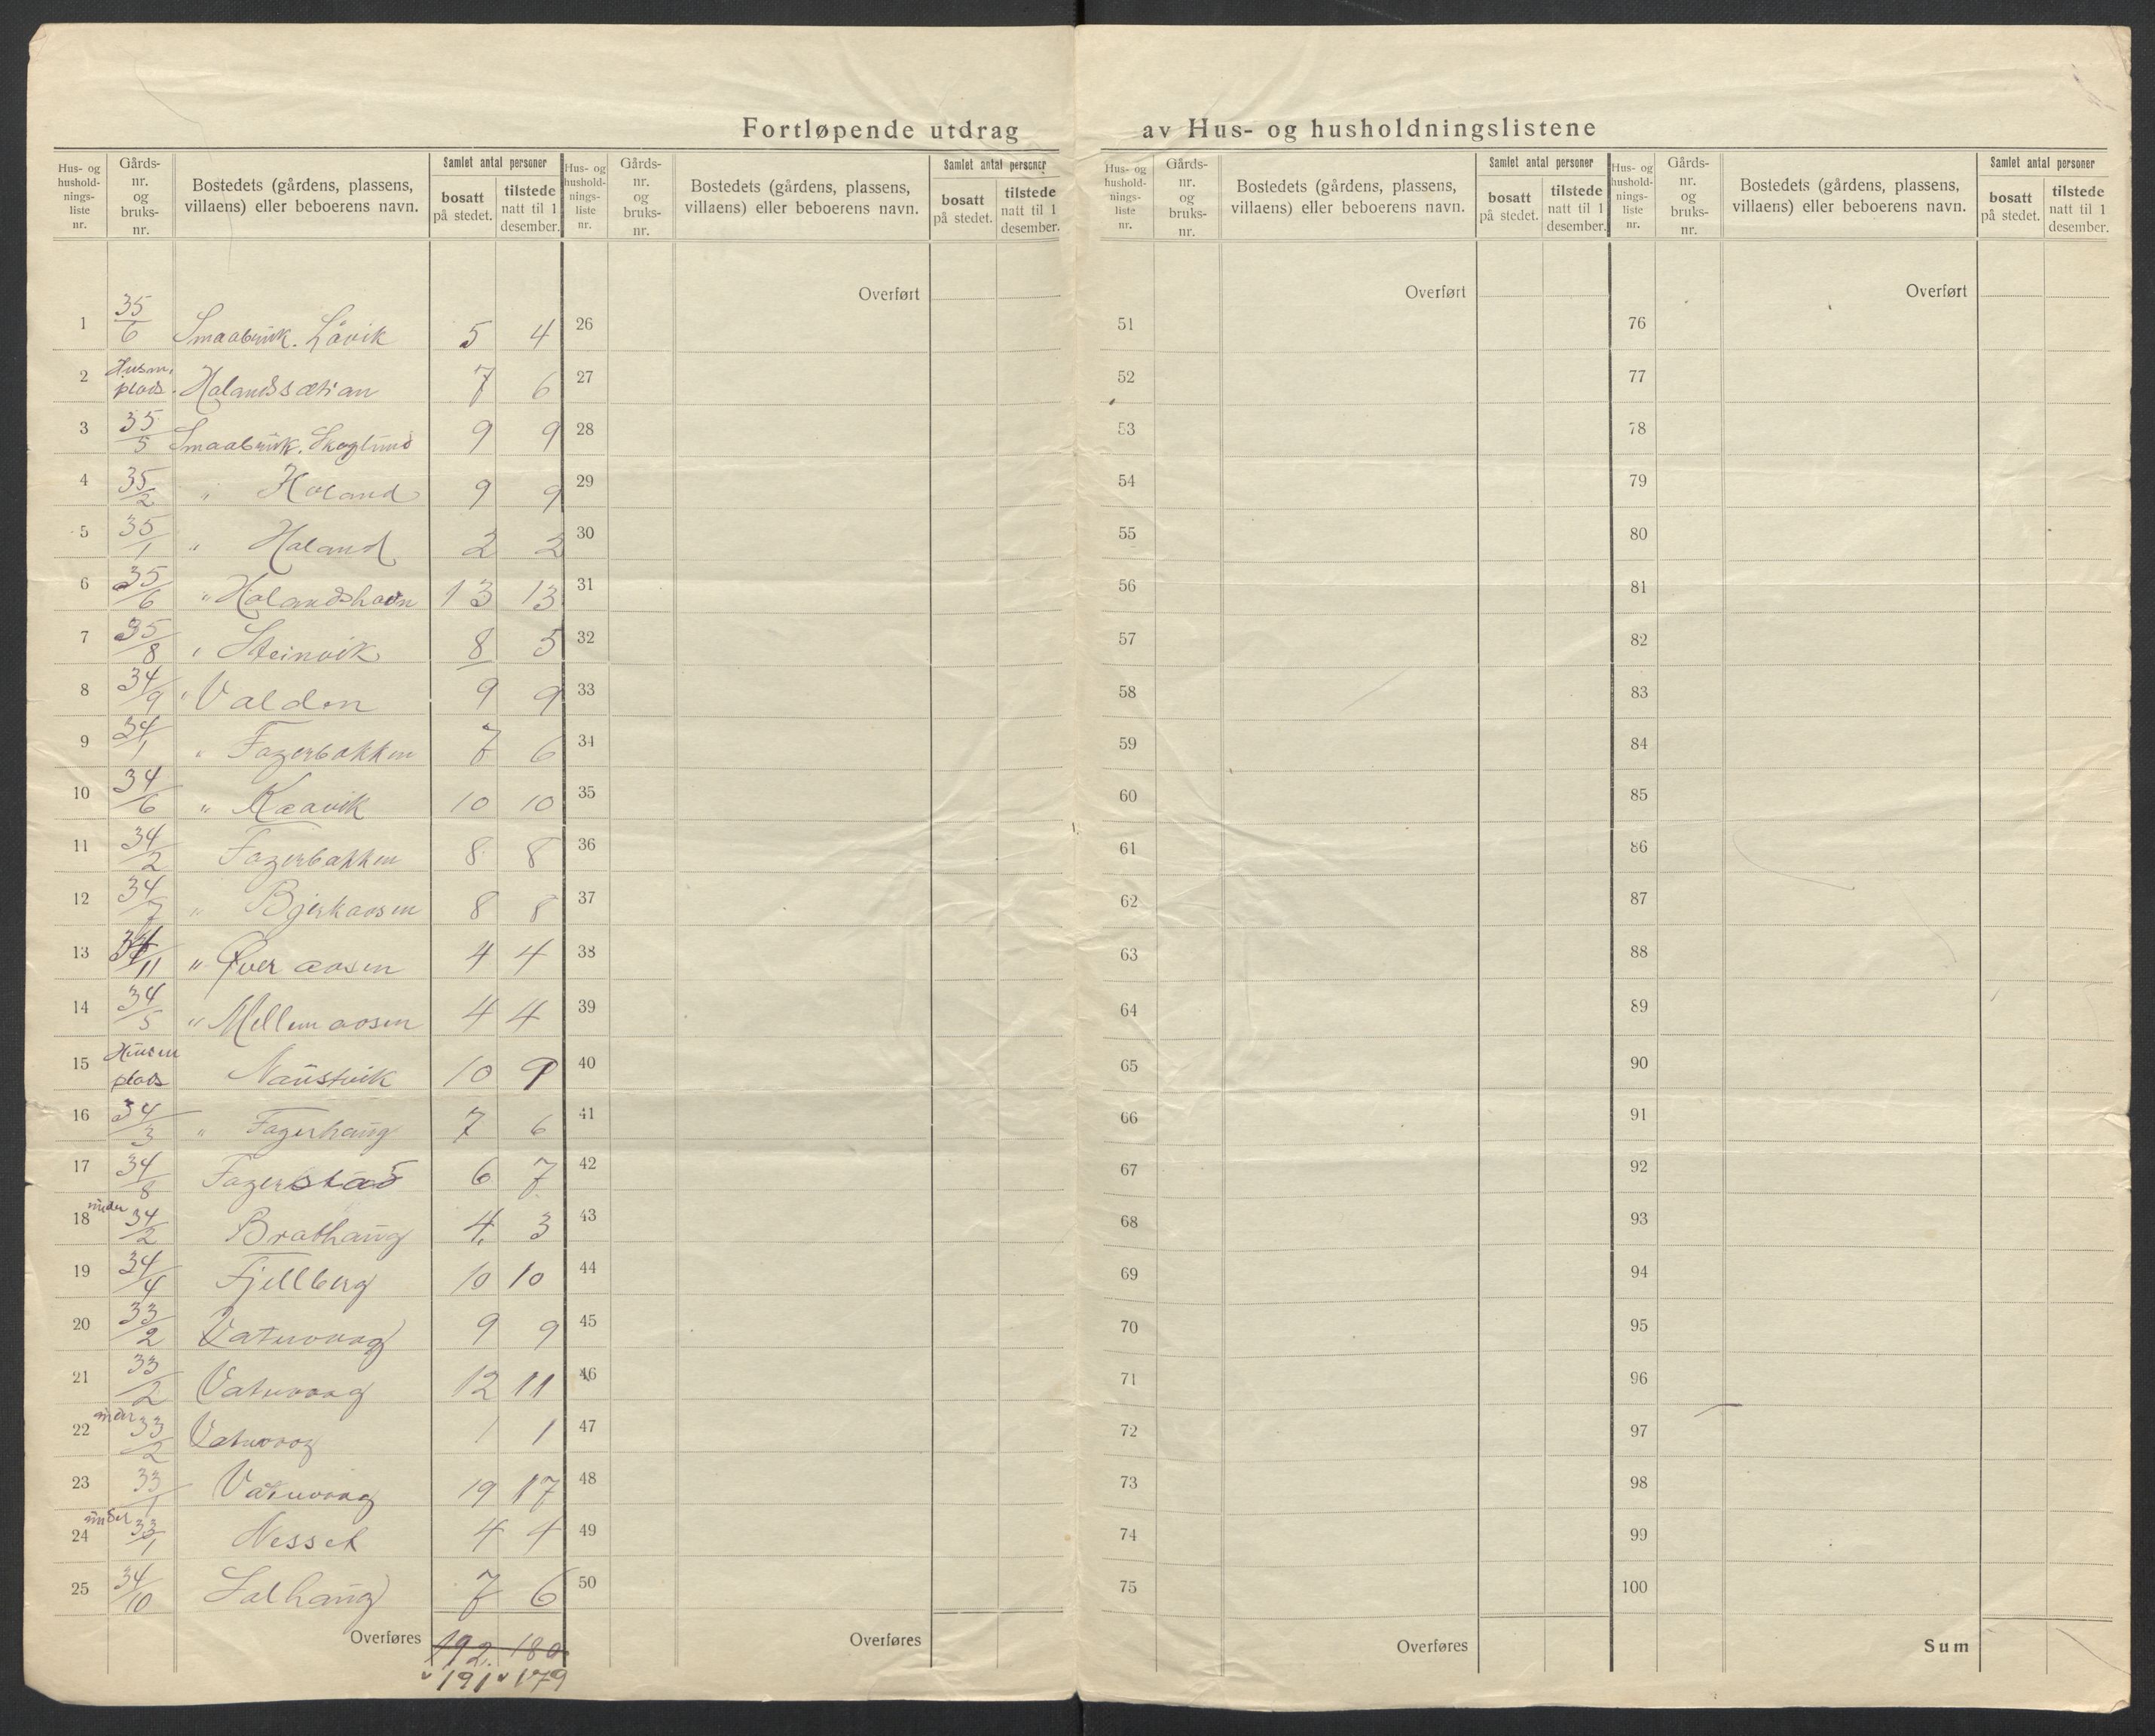 Fortløpende utdrag av Hus- og husholdningslistene
Hus- og hushold-nings-liste nr. Gårds-nr. og bruks-nr. Bostedets (gårdens, plassens, villaens) eller beboerens navn. Samlet antal personer bosatt på stedet. tilstede natt til 1 desember.
Hus- og hushold-nings-liste nr. Gårds-nr. og bruks-nr. Bostedets (gårdens, plassens, villaens) eller beboerens navn. Samlet antal personer bosatt på stedet. tilstede natt til 1 desember.
Hus- og hushold-nings-liste nr. Gårds-nr. og bruks-nr. Bostedets (gårdens, plassens, villaens) eller beboerens navn. Samlet antal personer bosatt på stedet. tilstede natt til 1 desember.
Hus- og hushold-nings-liste nr. Gårds-nr. og bruks-nr. Bostedets (gårdens, plassens, villaens) eller beboerens navn. Samlet antal personer bosatt på stedet. tilstede natt til 1 desember.
Overført Overført Overført
1 35/6 Smaabruk. Låvik 5 4 26 51 76
2 Husm. plads. Halandssætran 7 6 27 52 77
3 35/5 Smaabruk. Skoglund 9 9 28 53 78
4 35/2 " Haland 9 9 29 54 79
5 35/1 " Haland 2 2 30 55 80
6 35/6 " Halandshavn 13 13 31 56 81
7 35/8 " Steinvik 8 5 32 57 82
8 34/9 " Valden 9 9 33 58 83
9 34/1 " Fagerbakken 7 6 34 59 84
10 34/6 " Kaavik 10 10 35 60 85
11 34/2 Fagerbakken 8 8 36 61 86
12 34/7 " Bjerkaasen 8 8 37 62 87
13 34/11 " Øver aasen 4 4 38 63 88
14 34/5 " Mellem aasen 4 4 39 64 89
15 Husm plads Naustvik 10 9 40 65 90
16 34/3 " Fagerhaug 7 6 41 66 91
17 34/8 Fagerstad 6 7 42 67 92
18 under 34/2 Bratthaug 4 3 43 68 93
19 34/4 Fjellberg 10 10 44 69 94
20 33/2 Vatnvaag 9 9 45 70 95
21 33/2 Vatnvaag 12 11 46 71 96
22 under 33/2 Vatnvaag 1 1 47 72 97
23 33/1 Vatnvaag 19 17 48 73 98
24 under 33/1 Nesset 4 4 49 74 99
25 34/10 Solhaug 7 6 50 75 100
Overføres 192 180 Overføres Overføres Sum
" 191 " 179